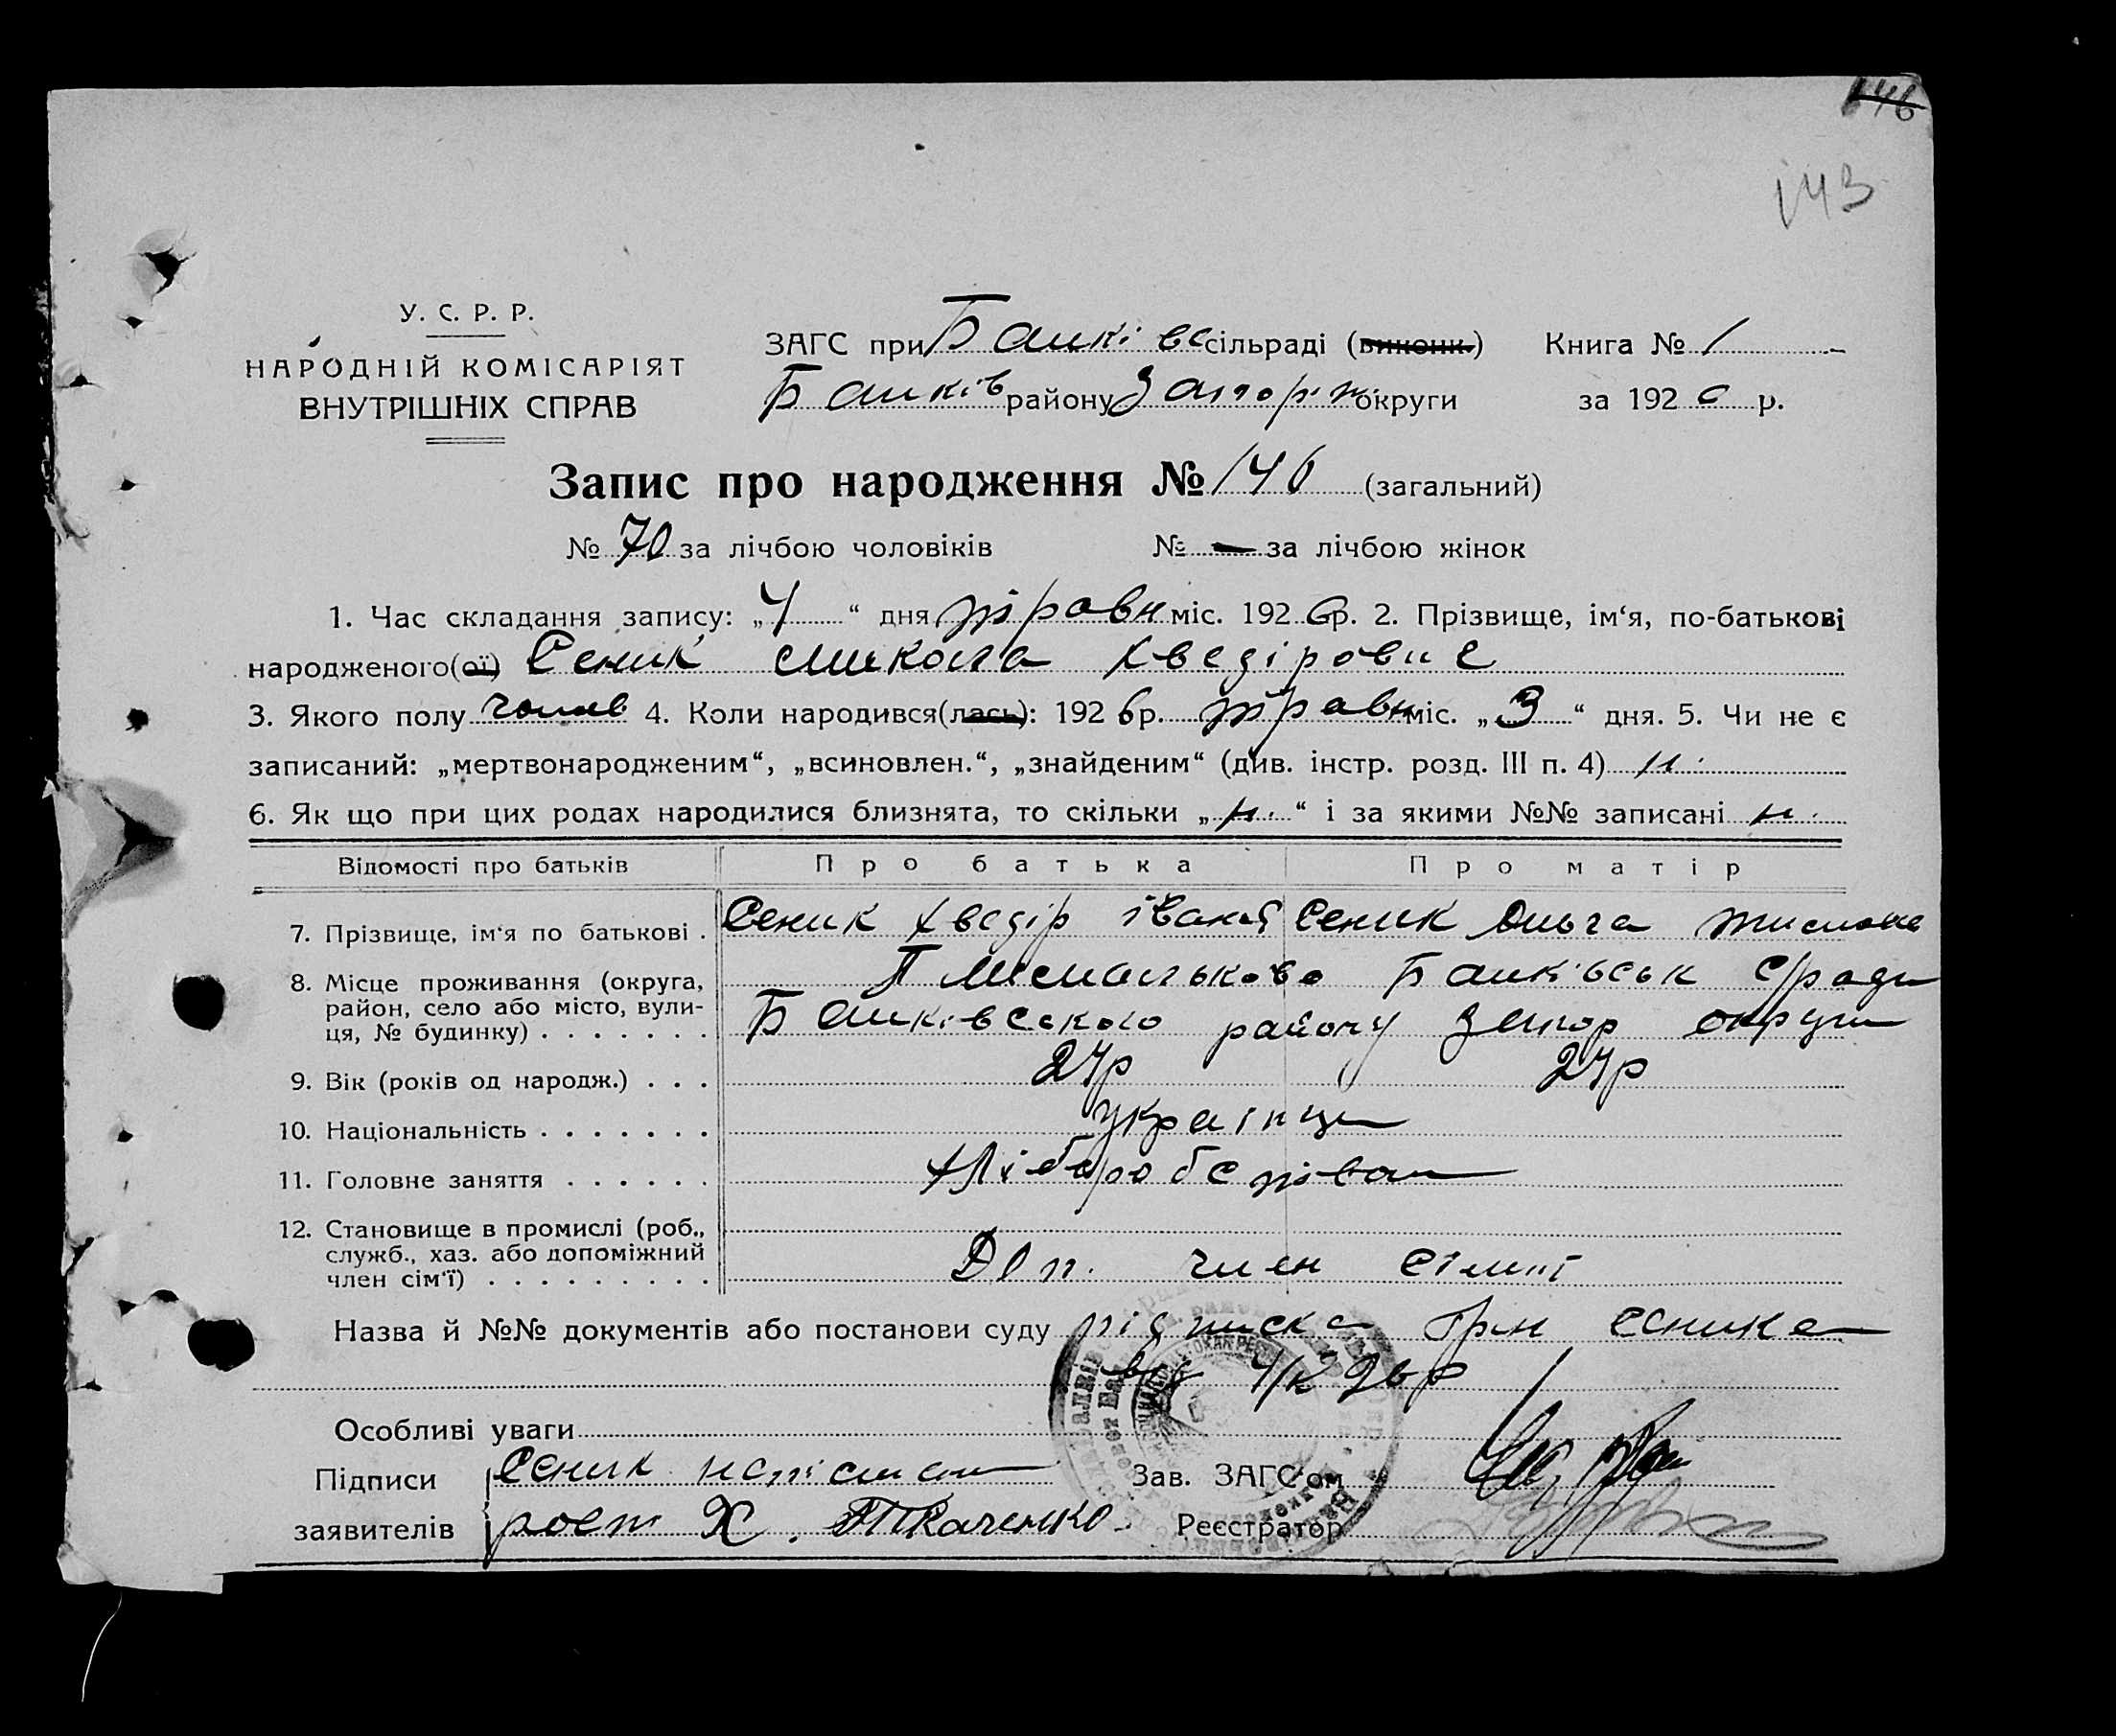 146
143
У. С. Р. Р.
НАРОДНІЙ КОМІСАРІЯТ
ВНУТРІШНІХ СПРАВ
ЗАГС при Балкі вс сільраді (виконк.) Книга № 1
Балків району Запоріж округи за 1926 р.
Запис про народження № 146 (загальний)
№ 70 за лічбою чоловіків № — за лічбою жінок
1. Час складання запису: „4“ дня травн міс. 1926 р. 2. Прізвище, ім‘я, по-батькові
народженого(ої) Сеник Микола Хведірович
3. Якого полу чолов 4. Коли народився(лась): 1926 р. травн міс. „3“ дня. 5. Чи не є
записаний: „мертвонародженим“, „всиновлен.“, „знайденим“ (див. інстр. розд. III п. 4) н.
6. Як що при цих родах народилися близнята, то скільки „н.“ і за якими №№ записані н.
Відомості про батьків Про батька Про матір
7. Прізвище, ім‘я по батькові . Сеник Хведір Іван Сеник Ольга
8. Місце проживання (округа, район, село або місто, вулиця, № будинку) . . . . . . .
Балківськ с/ради
Балківського району Запор округи
9. Вік (років од народж.) . . . 24р 24р
10. Національність . . . . . . . українци
11. Головне заняття . . . . . . Хлібороб
12. Становище в промислі (роб., служб., хаз. або допоміжний член сім‘ї) . . . . . . . . . Доп. член сімї
Назва й №№ документів або постанови суду підписка гр-н Сеника
від 4/V 26 р
Особливі уваги
Підписи Сеник Зав. ЗАГС‘ом
заявителів рост Х. Ткаченко Реєстратор